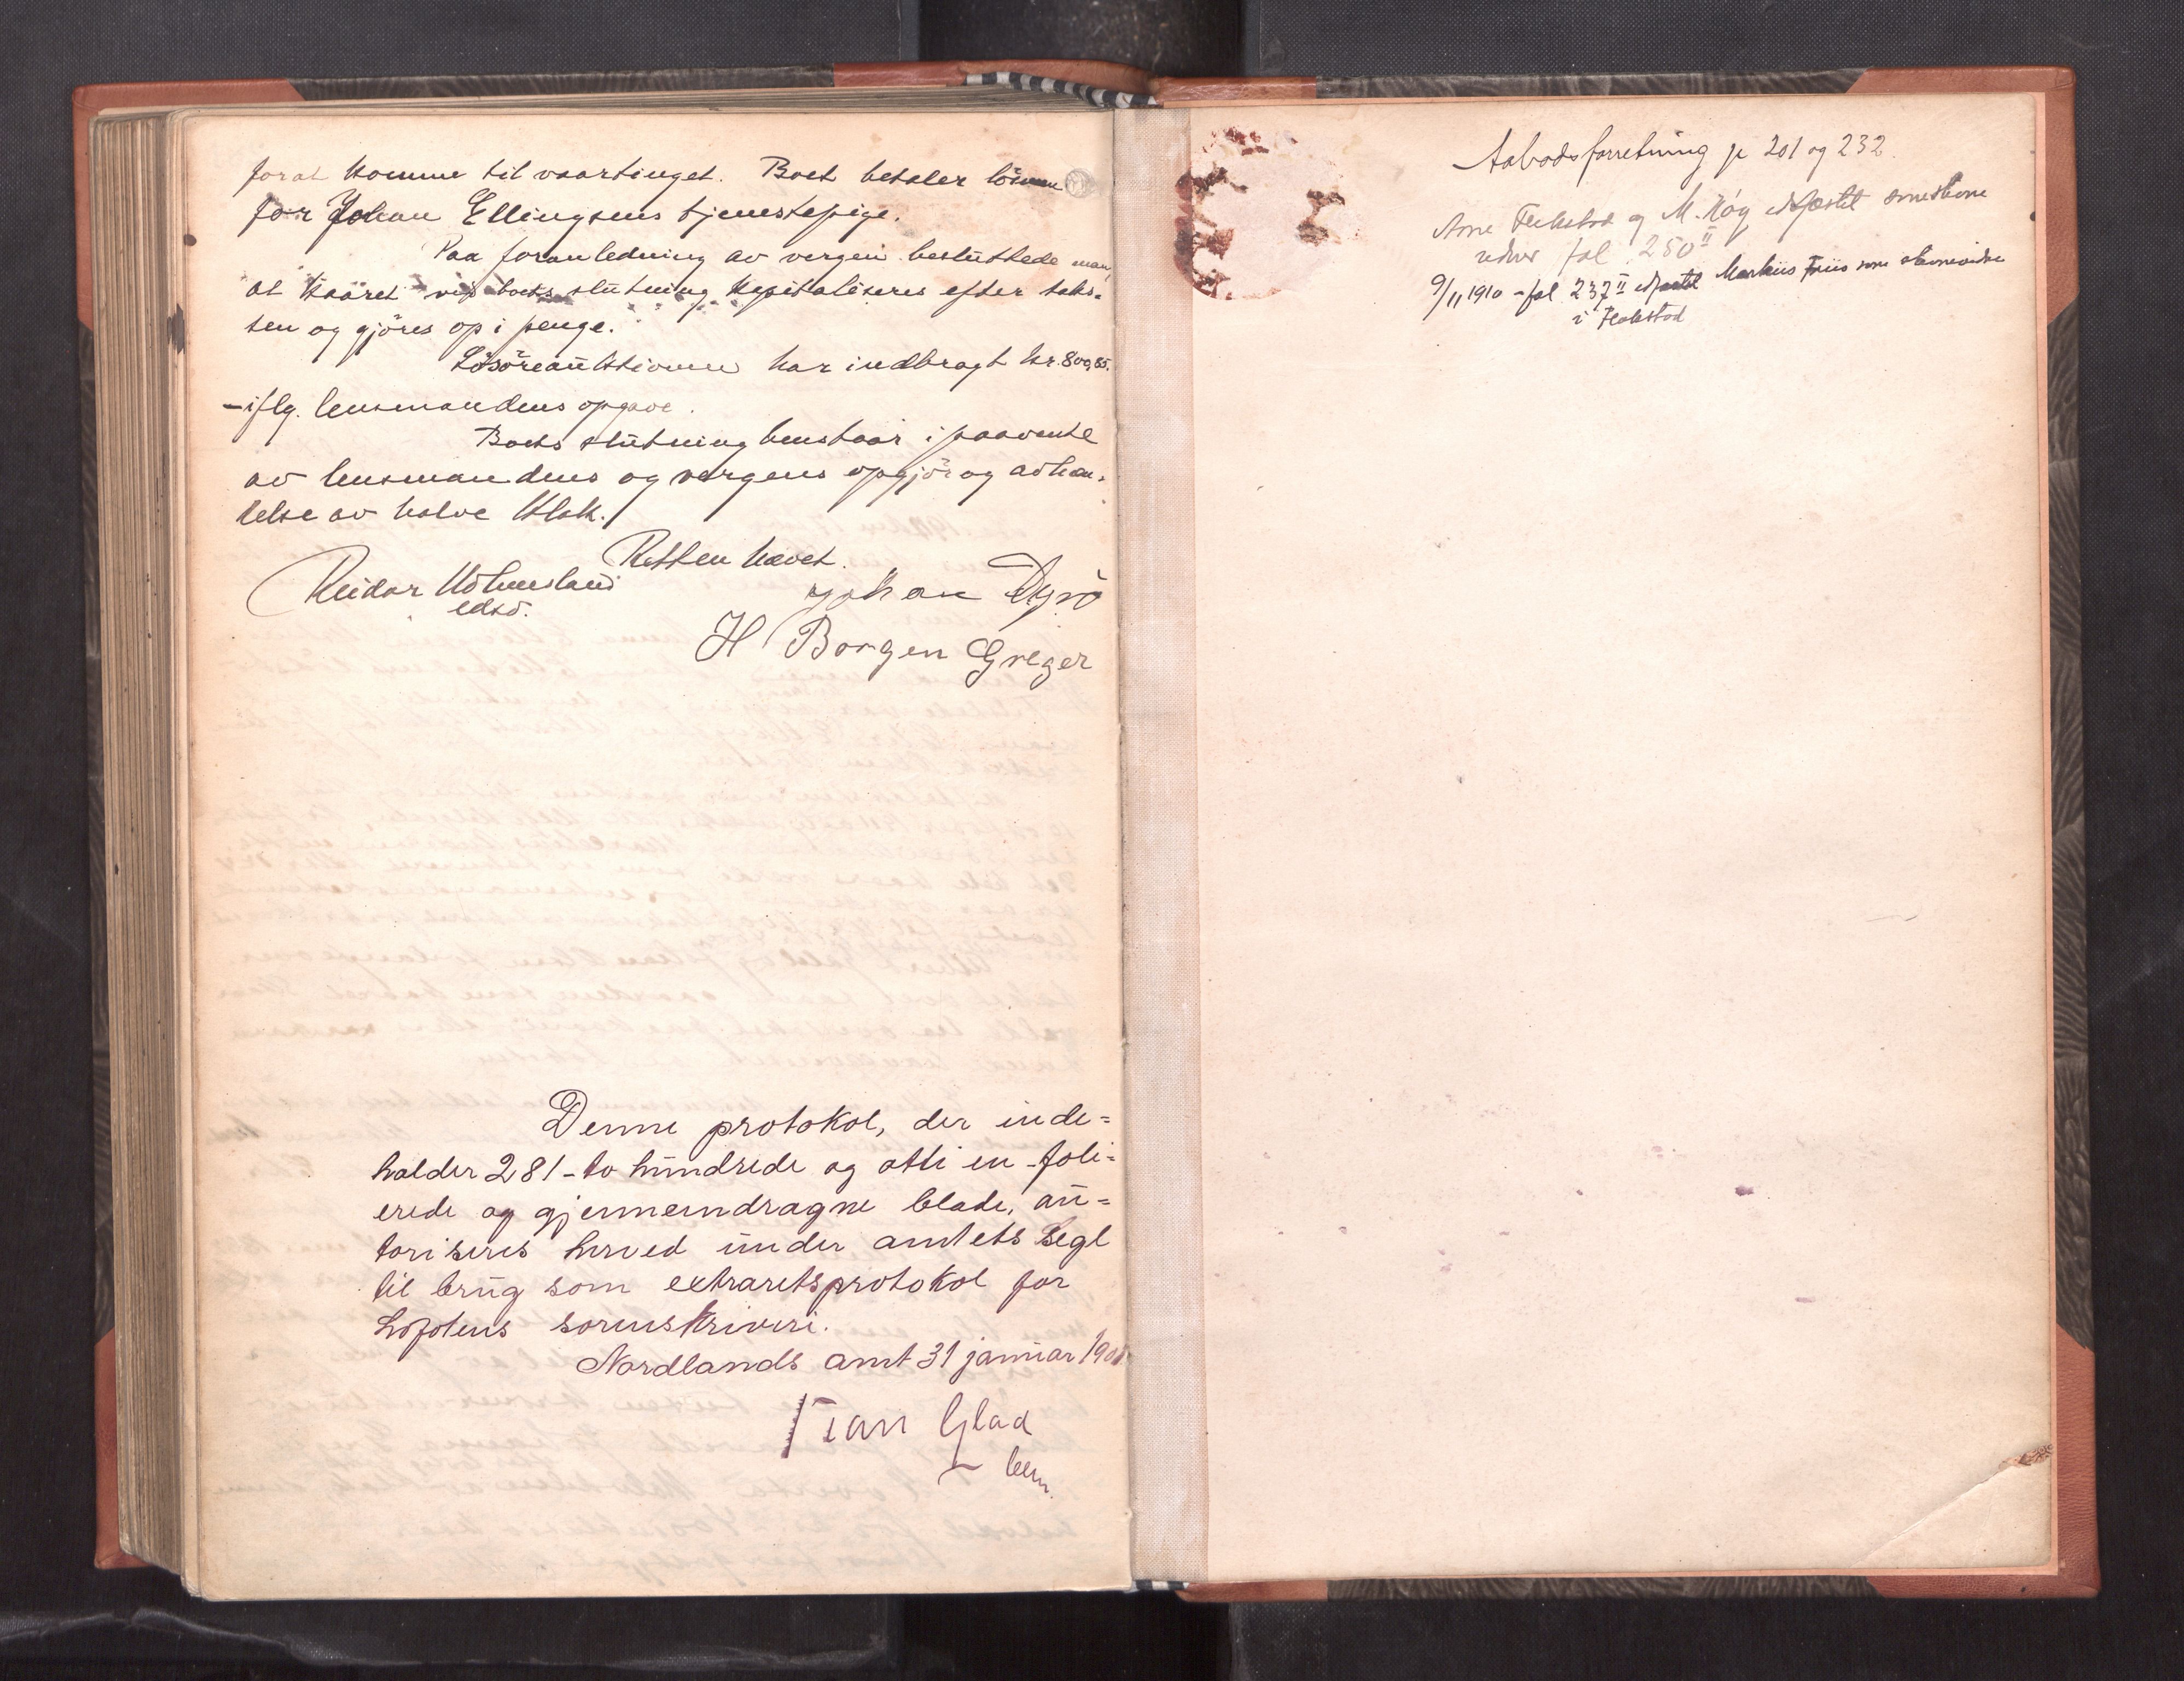 forat komme til vaartinget. Boet betaler lönnen
for Johan Ellingsens tjenestepige.
Paa foranledning av vergen besluttede man,
at kaaret ved boets slutning kapitaliseres efter taks-
ten og gjöres op i penge.
Lösöreauktionen har indbragt kr. 800,85.
- iflg. lensmandens opgave.
Boets slutning henstaar i paavente
av lensmandens og vergens opgjör og avhæn-
delse av halve Klak.
Retten hævet.
Reidar Holmsland
edsv.
Johan Dyrö
H Borgen Greger
Denne protokol, der inde=
holder 281 - to hundrede og otti en - foli=
erede og gjennemdragne blade, au=
toriseres herved under amtets segl
til brug som extraretsprotokol for
Lofotens sorenskriveri.
Nordlands amt 31 januar 1901
Kian Glad
Aabodsforretning p 201 og 232
Arne Flakstad og M. Røg edfæstet som
fol 250 II
9/11 1910 - fol 237 II edfæstet Markus Friis som stevnevidne
i Flakstad